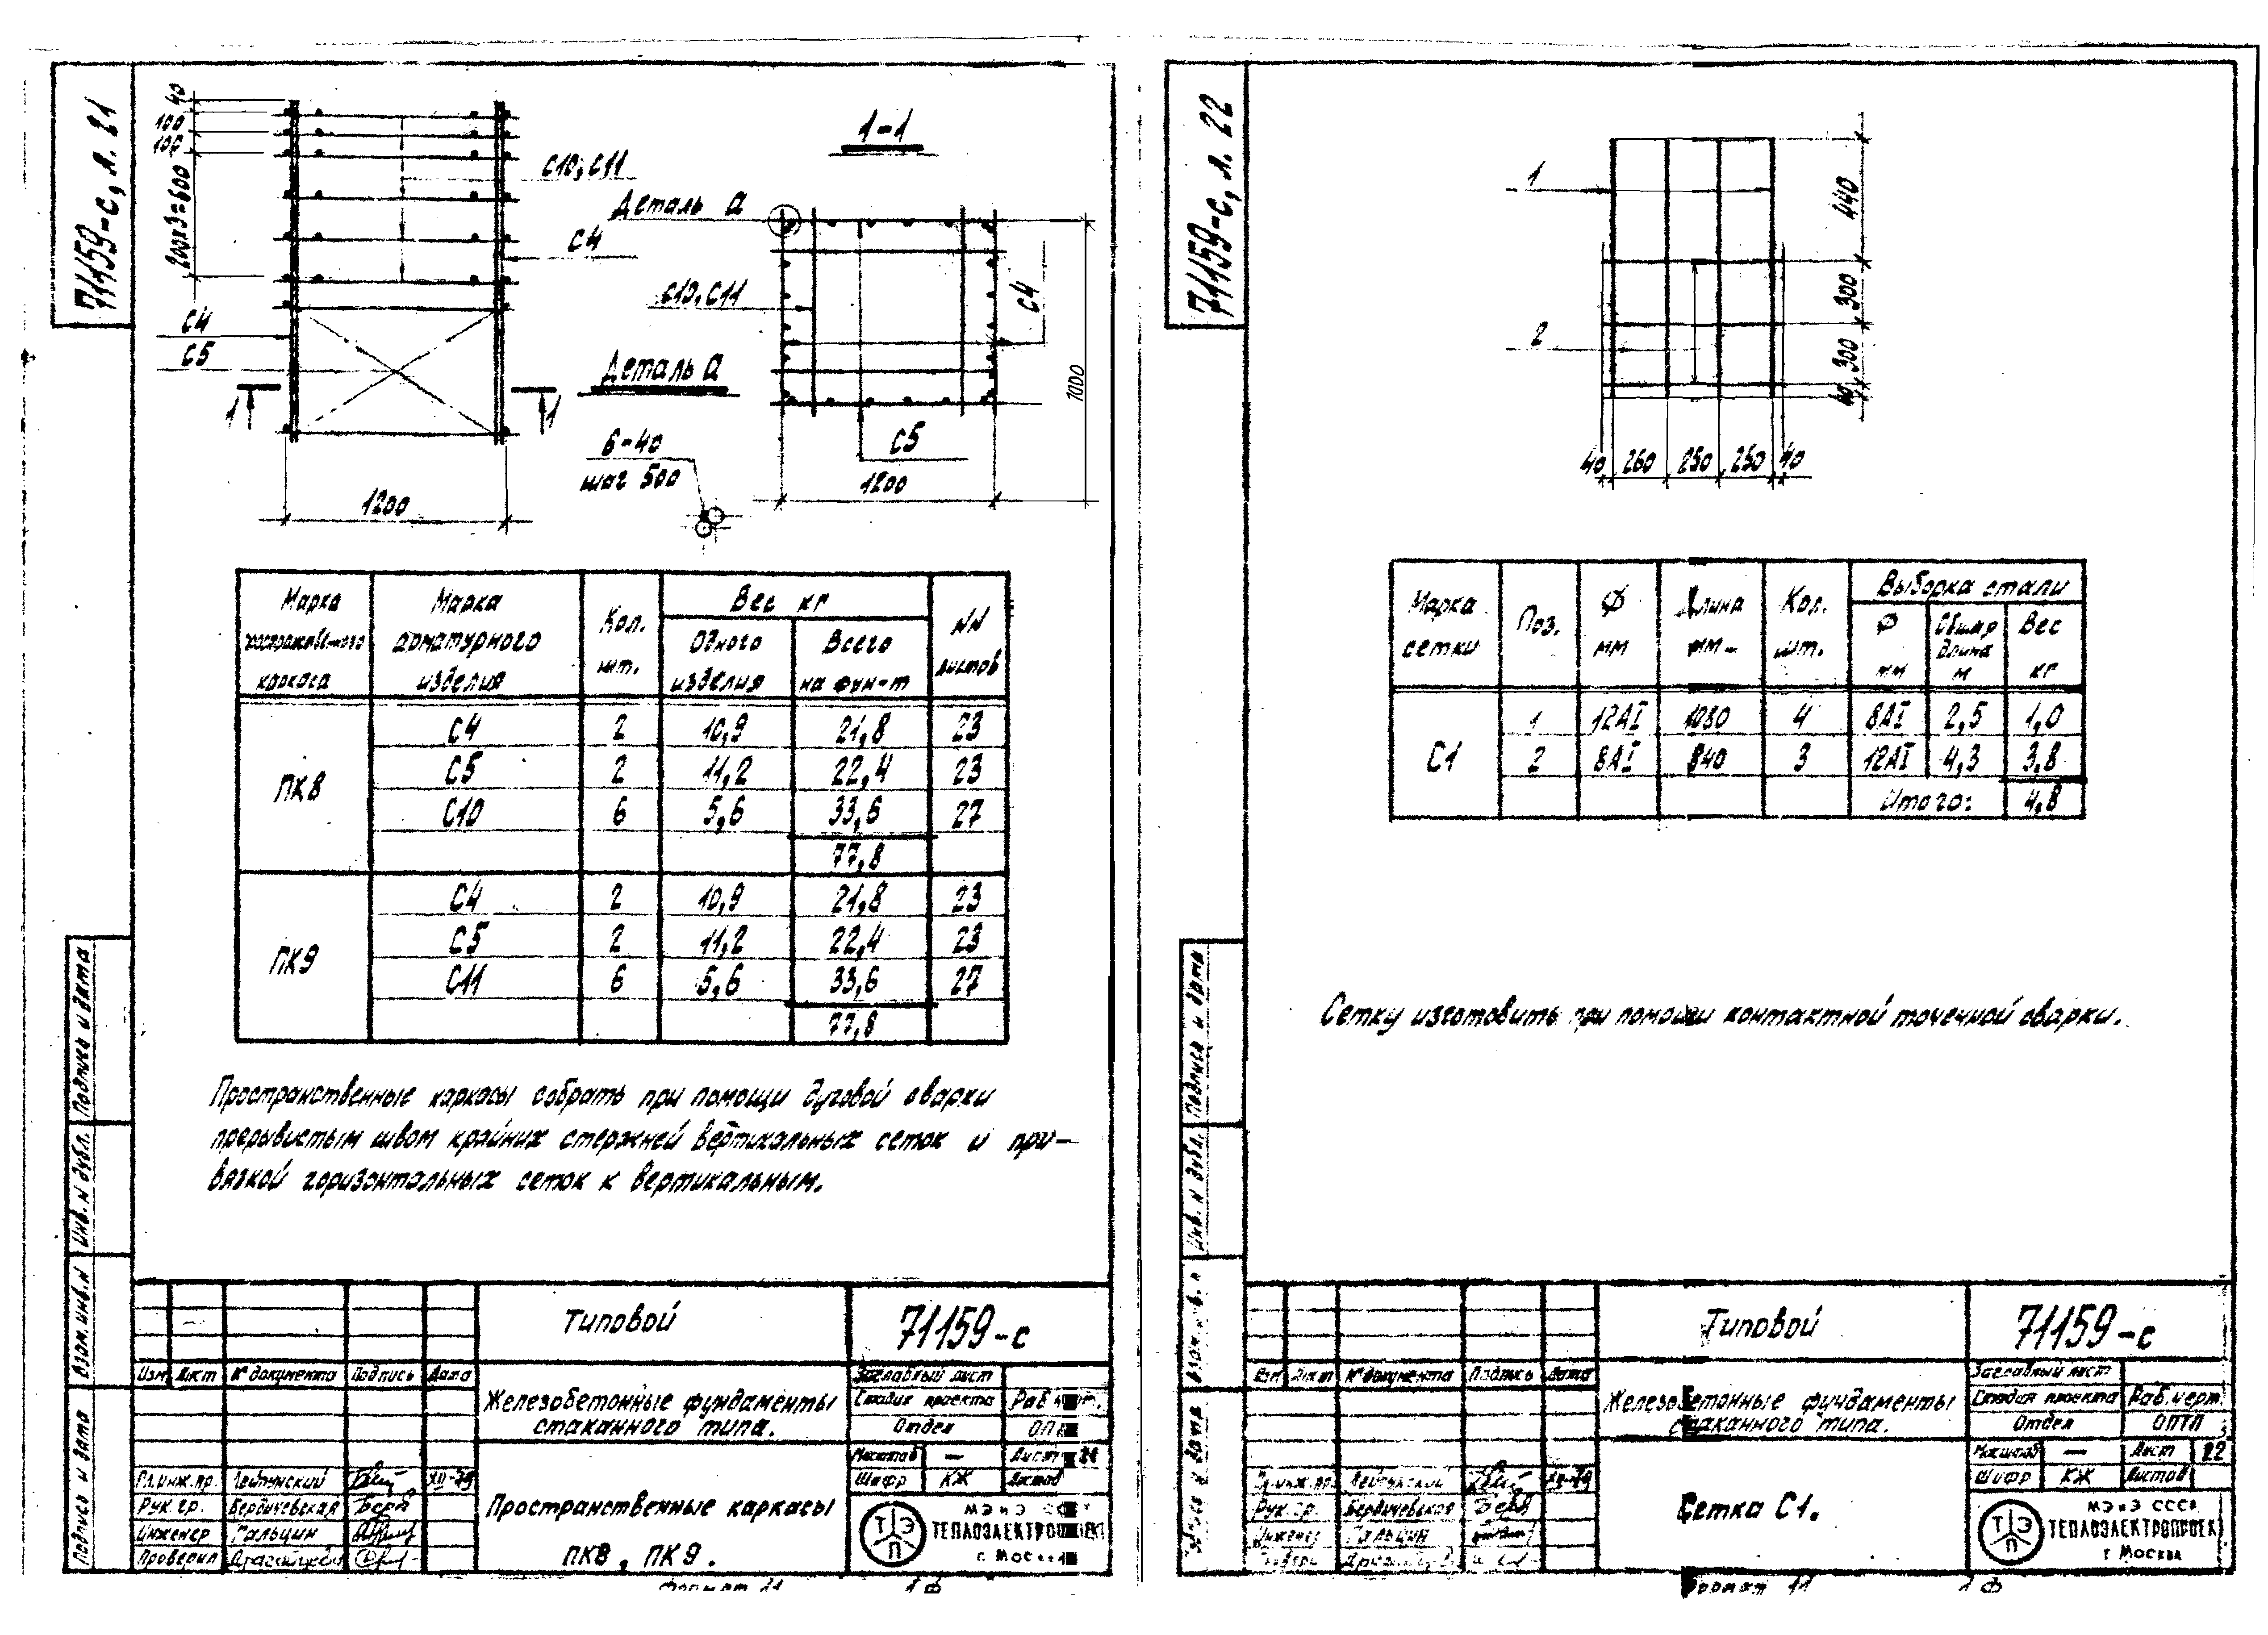 71159-с, л. 21
40
100
100
200х3=600
С10; С11
С4
С4
С5
1
1
1200
1-1
Деталь а
С10, С11
С4
Деталь а
6-40
шаг 500
С5
1200
1000
Марка пространственного каркаса
Марка арматурного изделия
Кол. шт.
Вес кг
Одного изделия
Всего на фун-т
NN листов
ПК8
С4 2 10,9 21,8 23
С5 2 11,2 22,4 23
С10 6 5,6 33,6 27
77,8
ПК9
С4 2 10,9 21,8 23
С5 2 11,2 22,4 23
С11 6 5,6 33,6 27
77,8
Пространственные каркасы собрать при помощи дуговой сварки
прерывистым швом крайних стержней вертикальных сеток и при-
вязкой горизонтальных сеток к вертикальным.
Подпись и дата
Инв. N дубл.
Взам. инв. N
Подпись и дата
Типовой
71159-с
Изм Лист N° документа Подпись Дата
Железобетонные фундаменты
стаканного типа.
Заглавный лист
Стадия проекта Раб
Отдел
Масштаб — Лист 21
Шифр КЖ Листов
Гл. инж. пр. Лейпунский XII-79
Рук. гр. Бердичевская
Инженер Гальцин
Проверил
Пространственные каркасы
ПК8, ПК9.
ТЭП
МЭиЭ
ТЕПЛОЭЛЕКТРОПРОЕКТ
г. Москва
Формат 11
1 Ф
71159-с, л. 22
1
2
440
300
300
40
40 260 250 250 40
Марка сетки
Поз.
Ф мм
Длина мм
Кол. шт.
Выборка стали
Ф мм
Общая длина м
Вес кг
С1
1 12АI 1080 4 8АI 2,5 1,0
2 8АI 840 3 12АI 4,3 3.8
Итого: 4,8
Сетку изготовить при помощи контактной точечной сварки.
Подпись и дата
Инв. N дубл.
Типовой
71159-с
Изм Лист N° документа Подпись Дата
Железобетонные фундаменты
стаканного типа.
Заглавный лист
Стадия проекта Раб. черт
Отдел ОПТП
Масштаб — Лист 22
Шифр КЖ Листов
Гл. инж. пр. Лейпунский XII-79
Рук. гр. Бердичевская
Инженер Гальцин
Сетка С1.
ТЭП
МЭиЭ СССР
ТЕПЛОЭЛЕКТРОПРОЕКТ
г Москва
Формат 11
1 Ф